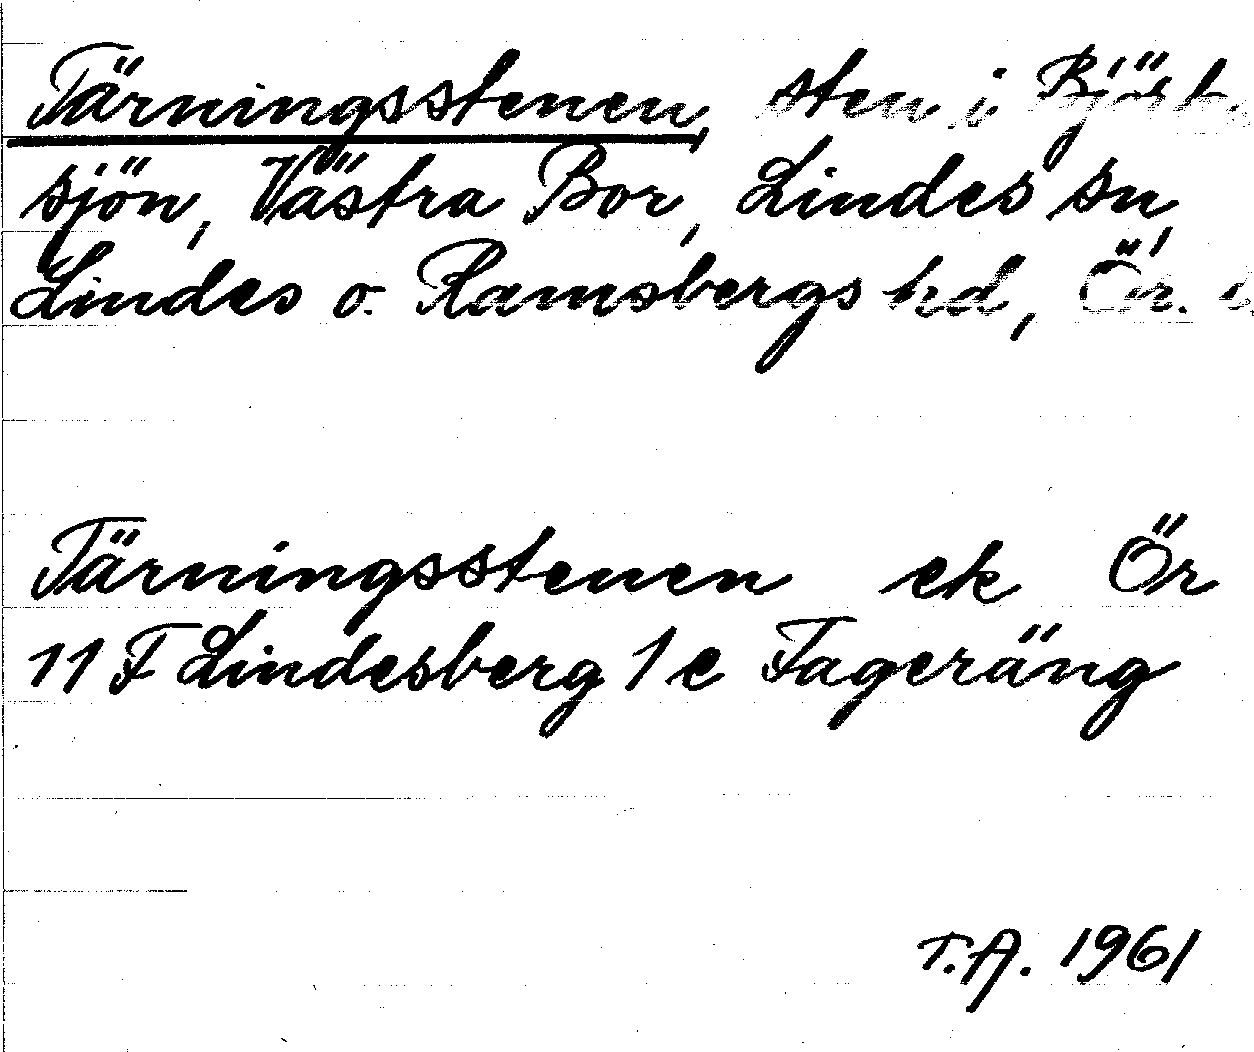 Tärningsstenen, sten i Björk-
sjön, Västra Bor, Lindes sn,
Lindes o. Ramsbergs hd, Ör.
Tärningsstenen ek Ör
11 F Lindesberg 1 e Fageräng
T.A. 1961